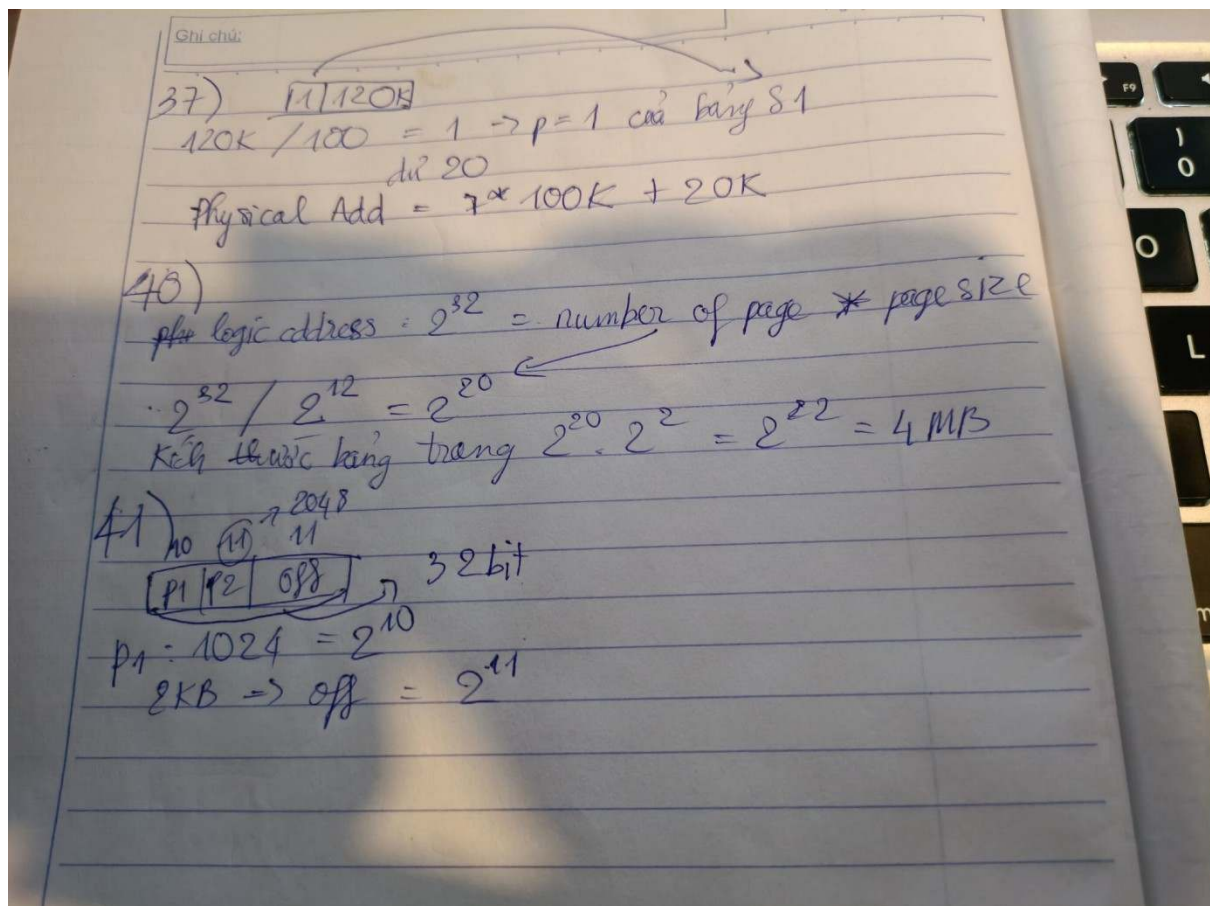 Ghi chú:
37) |1|120K|
120K / 100 = 1 -> p = 1 của bảng S1
dư 20
Physical Add = 7* 100K + 20K
40)
logic address : 2^32 = number of page * page size
2^32 / 2^12 = 2^20
Kích thước bảng trang 2^20 . 2^2 = 2^22 = 4 MB
41) 10 11 -> 2048
11
|P1|P2| Off| -> 32bit
P1 : 1024 = 2^10
2KB => off = 2^11
F9
)
0
O
L